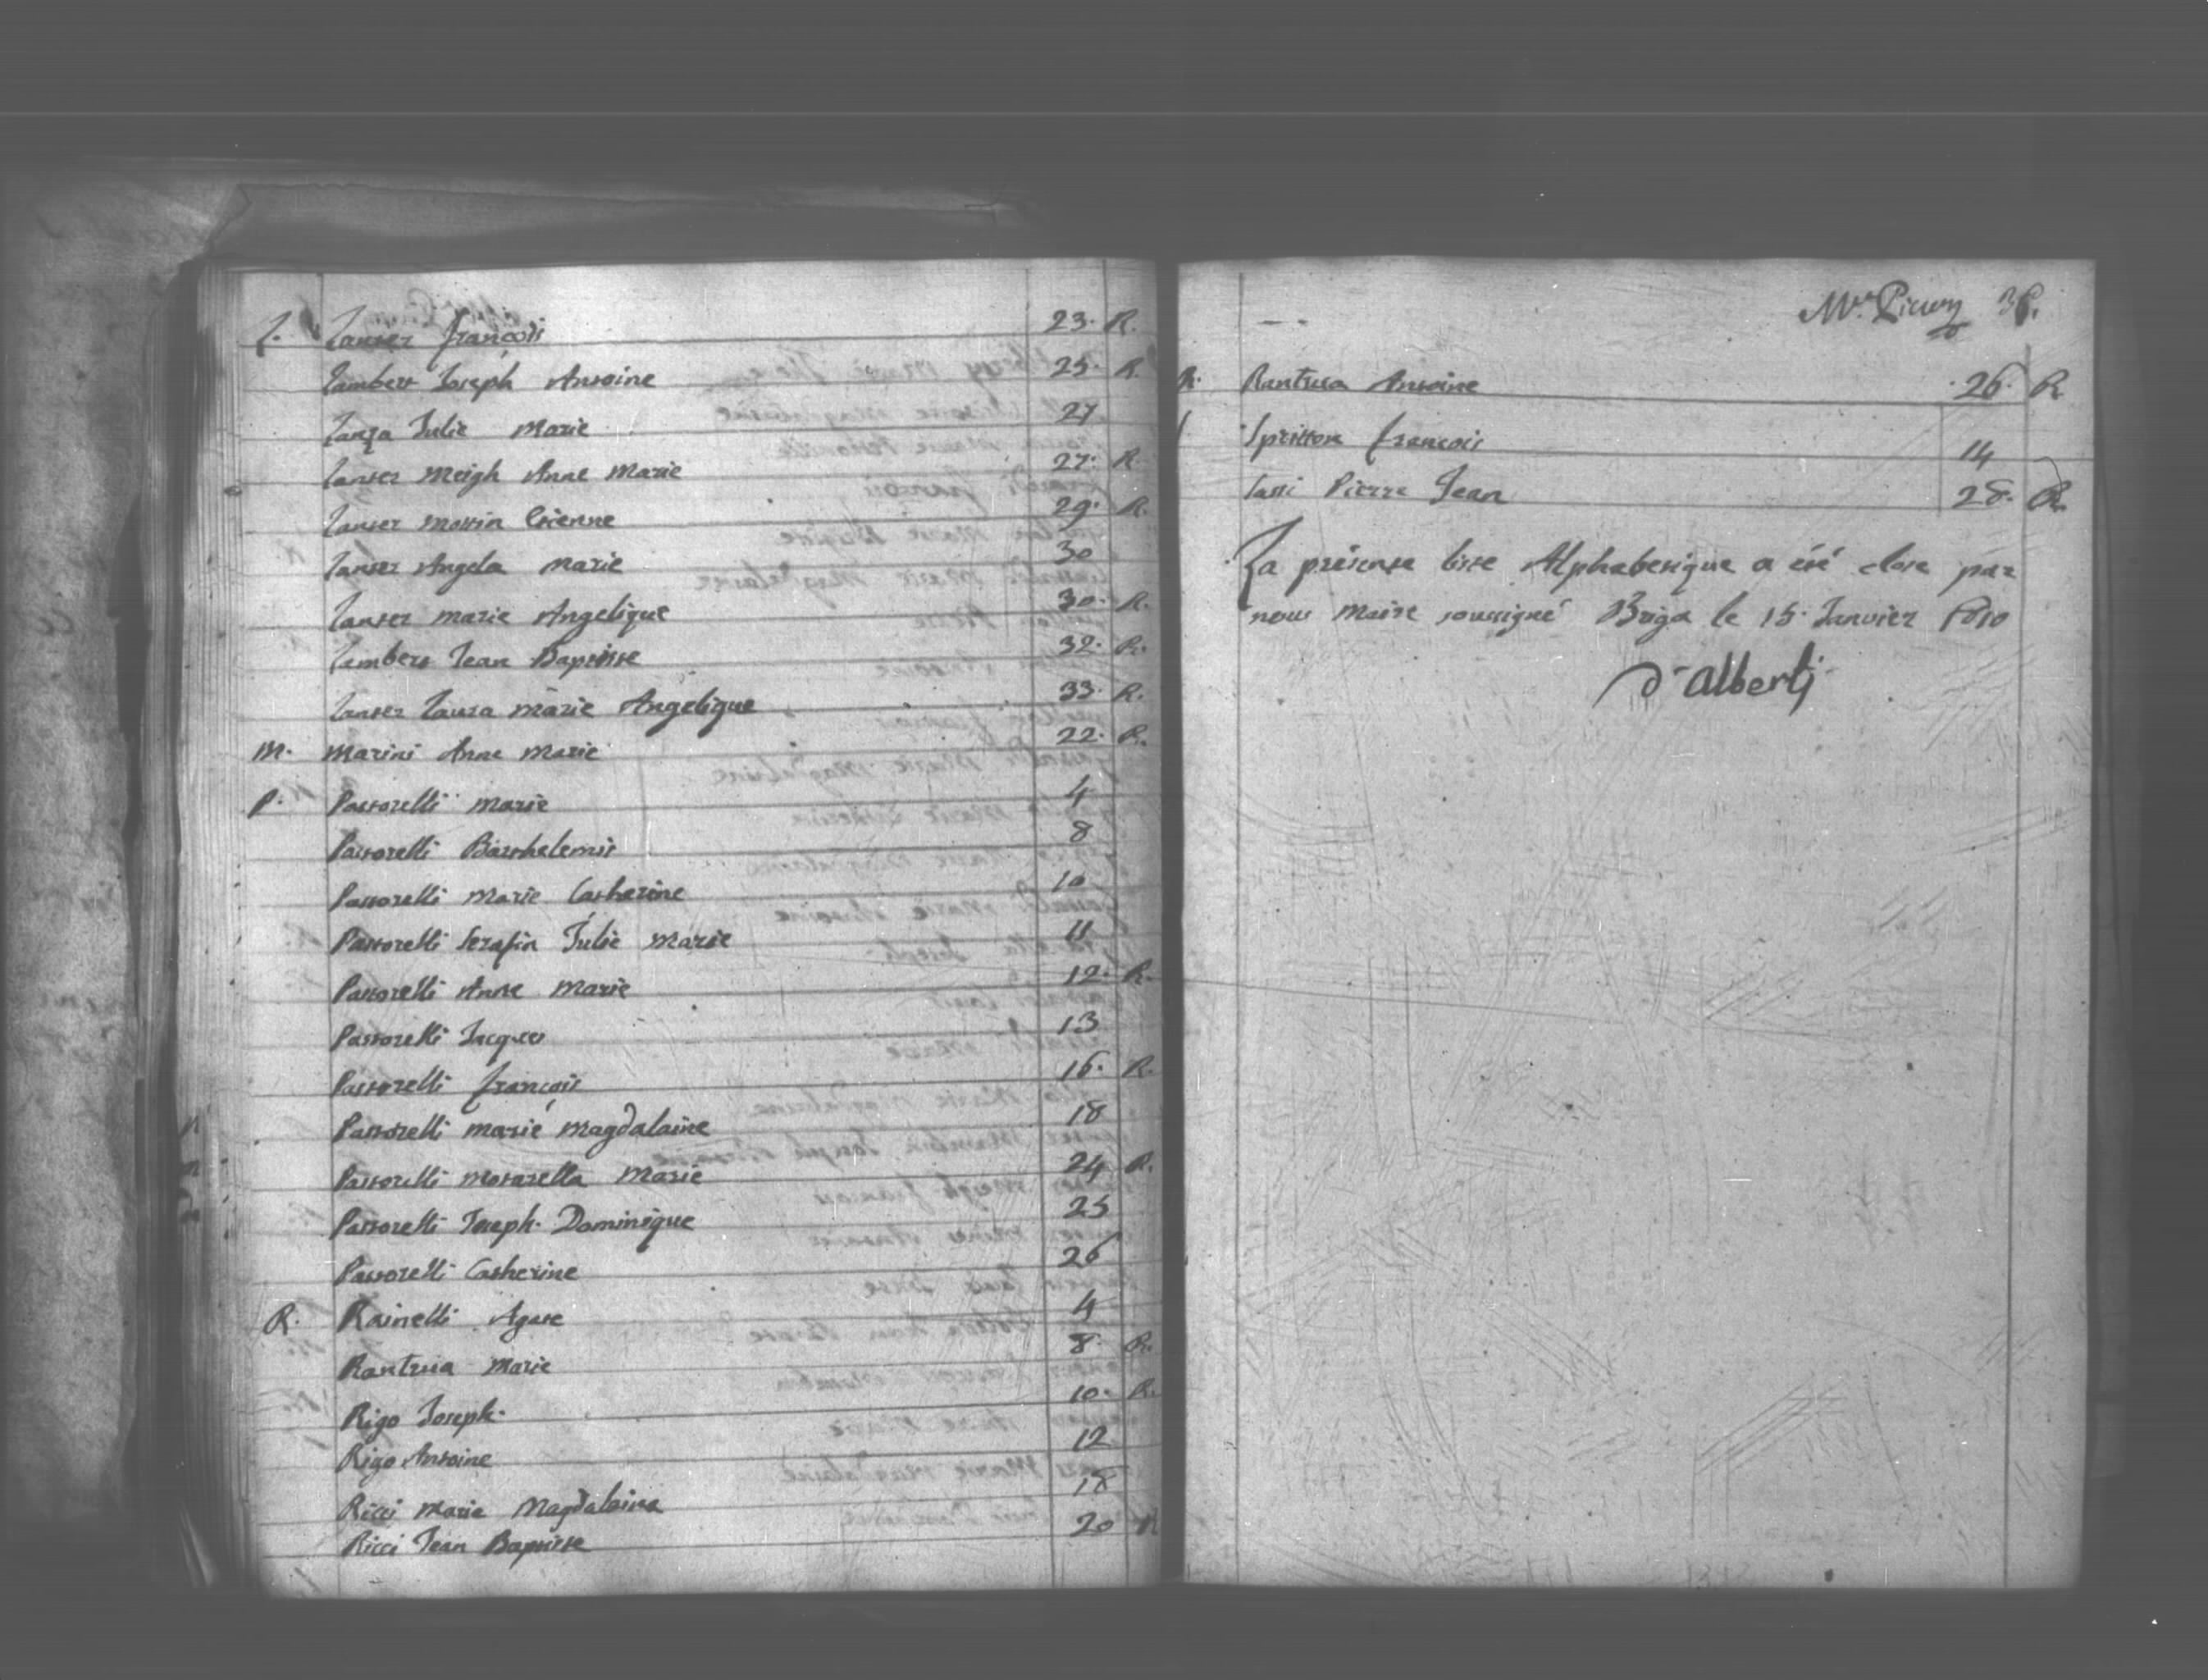 L. Lanter françois 23. R.
Lambert Joseph Antoine 25. R.
Lanza Julie Marie 27
Lanter Meigh Anne Marie 27. R.
Lanter Etienne 29. R.
Lanter Angela Marie 30
Lanter Marie Angelique 30. R.
Lambert Jean Baptiste 32. R.
Lanter Laura Marie Angelique 33. R.
M. Marini Anne Marie 22. R.
P. Pastorelli Marie 4
Pastorelli Barthelemie 8
Pastorelli Marie Catherine 10
Pastorelli Serafin Julie Marie 11
Pastorelli Anne Marie 12. R.
Pastorelli Jacques 13
Pastorelli françois 16. R.
Pastorelli Marie Magdalaine 18
Pastorelli Marie 24 R.
Pastorelli Joseph Dominique 25
Pastorelli Catherine 26
R. Rainelli Agate 4
Rantrua Marie 8. R.
Rigo Joseph 10. R.
Rigo Antoine 12
Ricci Marie Magdalaine 18
Ricci Jean Baptiste 20 R
R. Rantrua Antoine 26. R
françois 14
Pierre Jean 28. R.
La présente liste Alphabetique a été close par
nous Maire soussigné Briga le 15 Janvier 1810
D'alberti